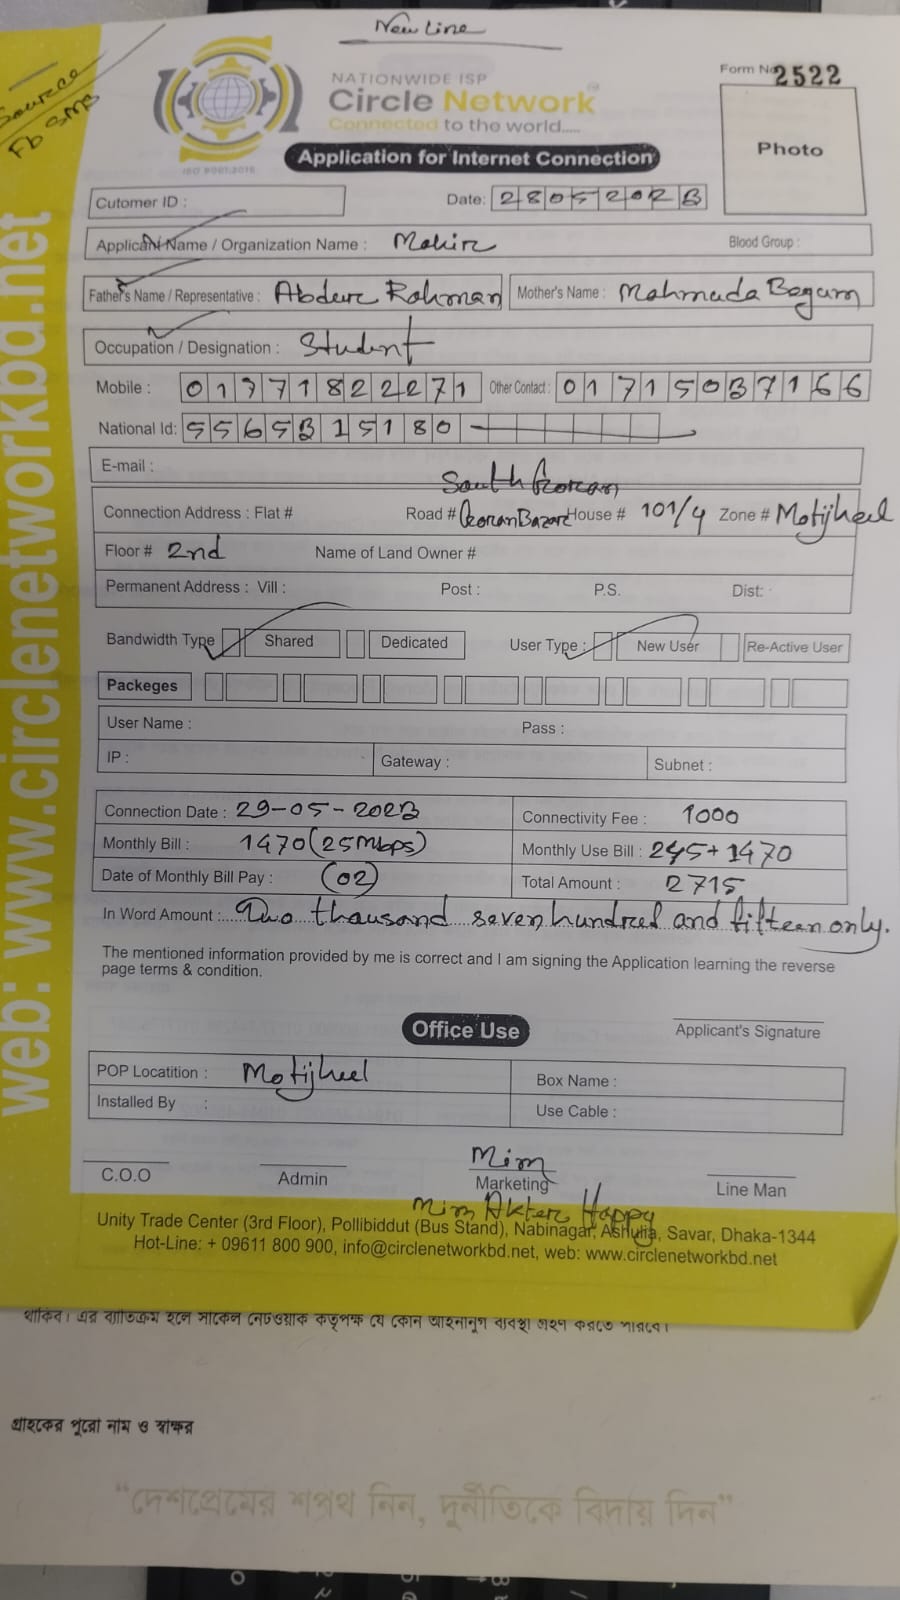 New Line
Source
Fb SMS
NATIONWIDE ISP
Form No 2522
Circle Network
Connected to the world.....
ISO 9001:2015
Photo
Application for Internet Connection
Cutomer ID :
Date: 28052023
Applicant Name / Organization Name : Mahir
Blood Group :
Father's Name / Representative : Abdur Rahman
Mother's Name : Mahmuda Begum
Occupation / Designation : Student
Mobile : 01771822271
Other Contact : 01715037166
National Id: 5565315180
E-mail :
South Goran
Connection Address : Flat # Road # Goran Bazar House # 101/4 Zone # Motijheel
Floor # 2nd Name of Land Owner #
Permanent Address : Vill : Post : P.S. Dist:
Bandwidth Type Shared Dedicated User Type : New User Re-Active User
Packeges
User Name : Pass :
IP : Gateway : Subnet :
Connection Date : 29-05-2023 Connectivity Fee : 1000
Monthly Bill : 1470 (25Mbps) Monthly Use Bill : 245+1470
Date of Monthly Bill Pay : (02) Total Amount : 2715
In Word Amount :....Two thousand seven hundred and fifteen only.
The mentioned information provided by me is correct and I am signing the Application learning the reverse
page terms & condition.
Office Use
Applicant's Signature
POP Locatition : Motijheel Box Name :
Installed By : Use Cable :
Mim
C.O.O Admin Marketing Line Man
Mim Akter Happy
Unity Trade Center (3rd Floor), Pollibiddut (Bus Stand), Nabinagar, Ashulia, Savar, Dhaka-1344
Hot-Line: + 09611 800 900, info@circlenetworkbd.net, web: www.circlenetworkbd.net
web: www.circlenetworkbd.net
থাকিব। এর ব্যতিক্রম হলে সার্কেল নেটওয়াক কতৃপক্ষ যে কোন আইনানুগ ব্যবস্থা গ্রহণ করতে পারবে।
গ্রাহকের পুরো নাম ও স্বাক্ষর
“দেশপ্রেমের শপথ নিন, দুর্নীতিকে বিদায় দিন”